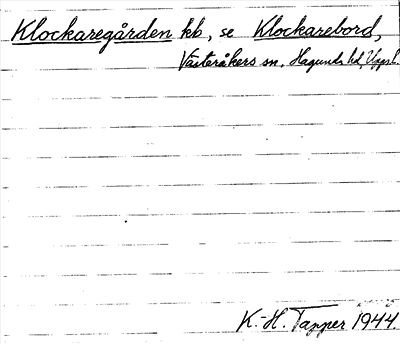 Klockaregården kb, se Klockarebord,
Västeråkers sn. Hagunda hd, Uppsl.
K.-H. Tapper 1944.